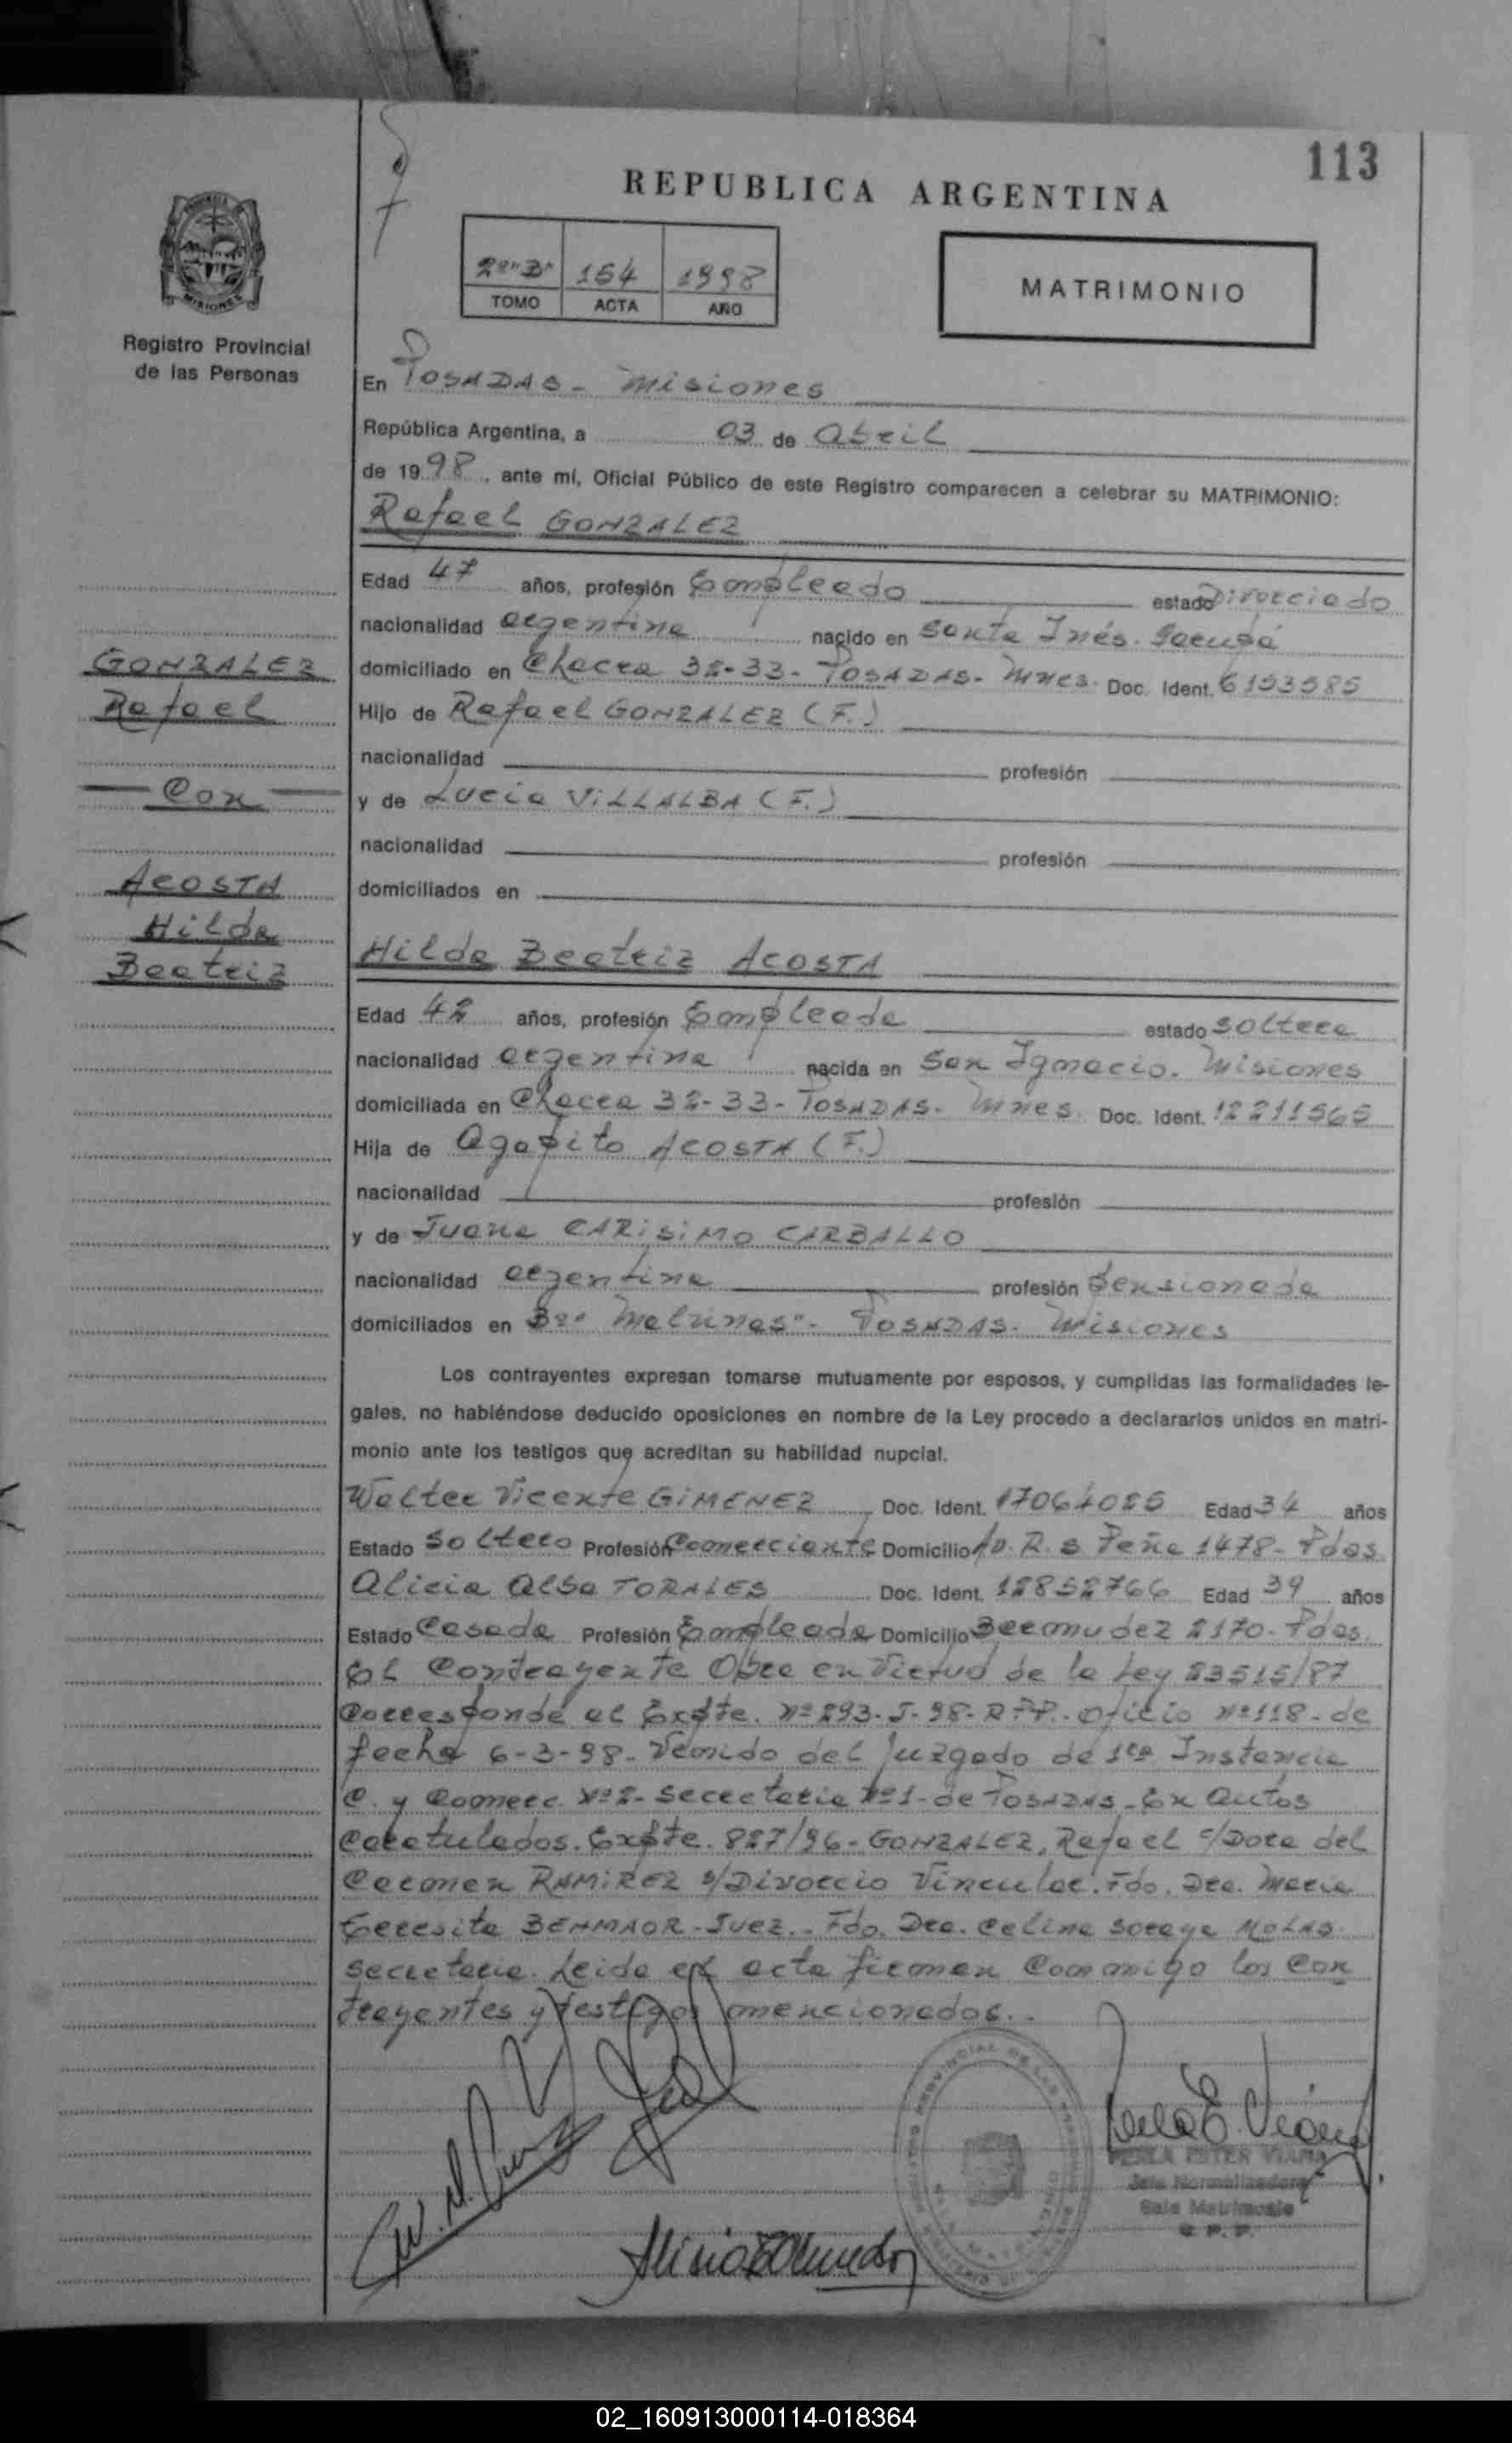 113
REPUBLICA ARGENTINA
2º "B" 164 1998
TOMO ACTA AÑO
MATRIMONIO
MISIONES
Registro Provincial
de las Personas
En POSADAS - Misiones
República Argentina, a 03 de Abril
de 1998, ante mí, Oficial Público de este Registro comparecen a celebrar su MATRIMONIO:
Rafael GONZALEZ
Edad 47 años, profesión Empleado estado Divorciado
nacionalidad argentina nacido en Santa Inés. Garupá
GONZALEZ
domiciliado en Chacra 32-33- POSADAS- Mnes. Doc. Ident. 6153585
Rafael
Hijo de Rafael GONZALEZ (F.)
nacionalidad profesión
Con
y de Lucia ViLLALBA (F.)
nacionalidad profesión
ACOSTA
domiciliados en
Hilda
Beatriz
Hilda Beatriz ACOSTA
Edad 42 años, profesión Empleada estado soltera
nacionalidad argentina nacida en San Ignacio. Misiones
domiciliada en Chacra 32-33- POSADAS- Mnes. Doc. Ident. 12211565
Hija de Agapito ACOSTA (F.)
nacionalidad profesión
y de Juana CARiSiMO CARBALLO
nacionalidad argentina profesión Pensionada
domiciliados en Bº "Malvinas"- POSADAS- Misiones
Los contrayentes expresan tomarse mutuamente por esposos, y cumplidas las formalidades le-
gales, no habiéndose deducido oposiciones en nombre de la Ley procedo a declararlos unidos en matri-
monio ante los testigos que acreditan su habilidad nupcial.
Walter Vicente GiMENEZ Doc. Ident. 17064025 Edad 34 años
Estado Soltero Profesión Comerciante Domicilio R. S Peña 1478- Pdas.
Alicia Alba TORALES Doc. Ident. 12852766 Edad 39 años
Estado Casada Profesión Empleada Domicilio Bermudez 2170- Pdas.
El Contrayente Obra en Virtud de la Ley 23515/87
Corresponde al Expte. Nº 293-J-98-R.P.P.- Oficio Nº 118- de
fecha 6-3-98- Venido del Juzgado de 1ra Instancia
C. y Comerc. Nº 2- Secretaria Nº 1- de POSADAS- En Autos
Caratulados. Expte. 827/96- GONZALEZ, Rafael c/Dora del
Carmen RAMiREZ s/Divorcio Vincular. Fdo. Dra. Maria
Teresita BENMAOR- Juez.- Fdo. Dra. Celina Soraya MOLAS.
secretaria. Leida el acta firman Conmigo los Con
trayentes y testigos mencionados.-
PERLA ESTER VIANA
Jefe Normalizadora
Sala Matrimonio
R. P. P.
02_160913000114-018364